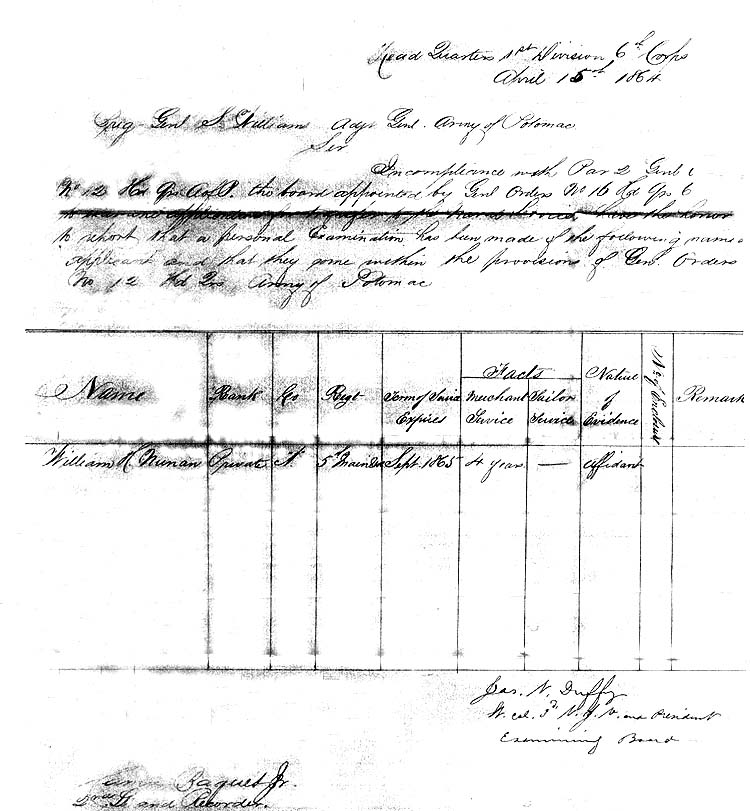 Head Quarters 1st Division 6th Corps
April 15th, 1864
Brig Genl S. William Adjt Genl. Army of Potomac
Sir
In compliance with Par 2 Genl
No 12 Hd Qrs A of P. the board appointed by Genl Orders No 16 Hd Qrs 6
to report that a personal Examination has been made of the following name
applicant and that they come within the provisions of Genl. Orders
No 12 Hd Qrs Army of Potomac
Name Rank Co Regt Term of Service Expires Facts Merchant Service Sailor Service Native of Evidence No of Enclosure Remark
William H. Nunan Privat K 5 Maine Sept. 1865 4 years — affidavt
Jas. N. Duffy
Lt. col. 3d N. J. V. and President
Examining Board
Raquet Jr.
Lt and Recorder.